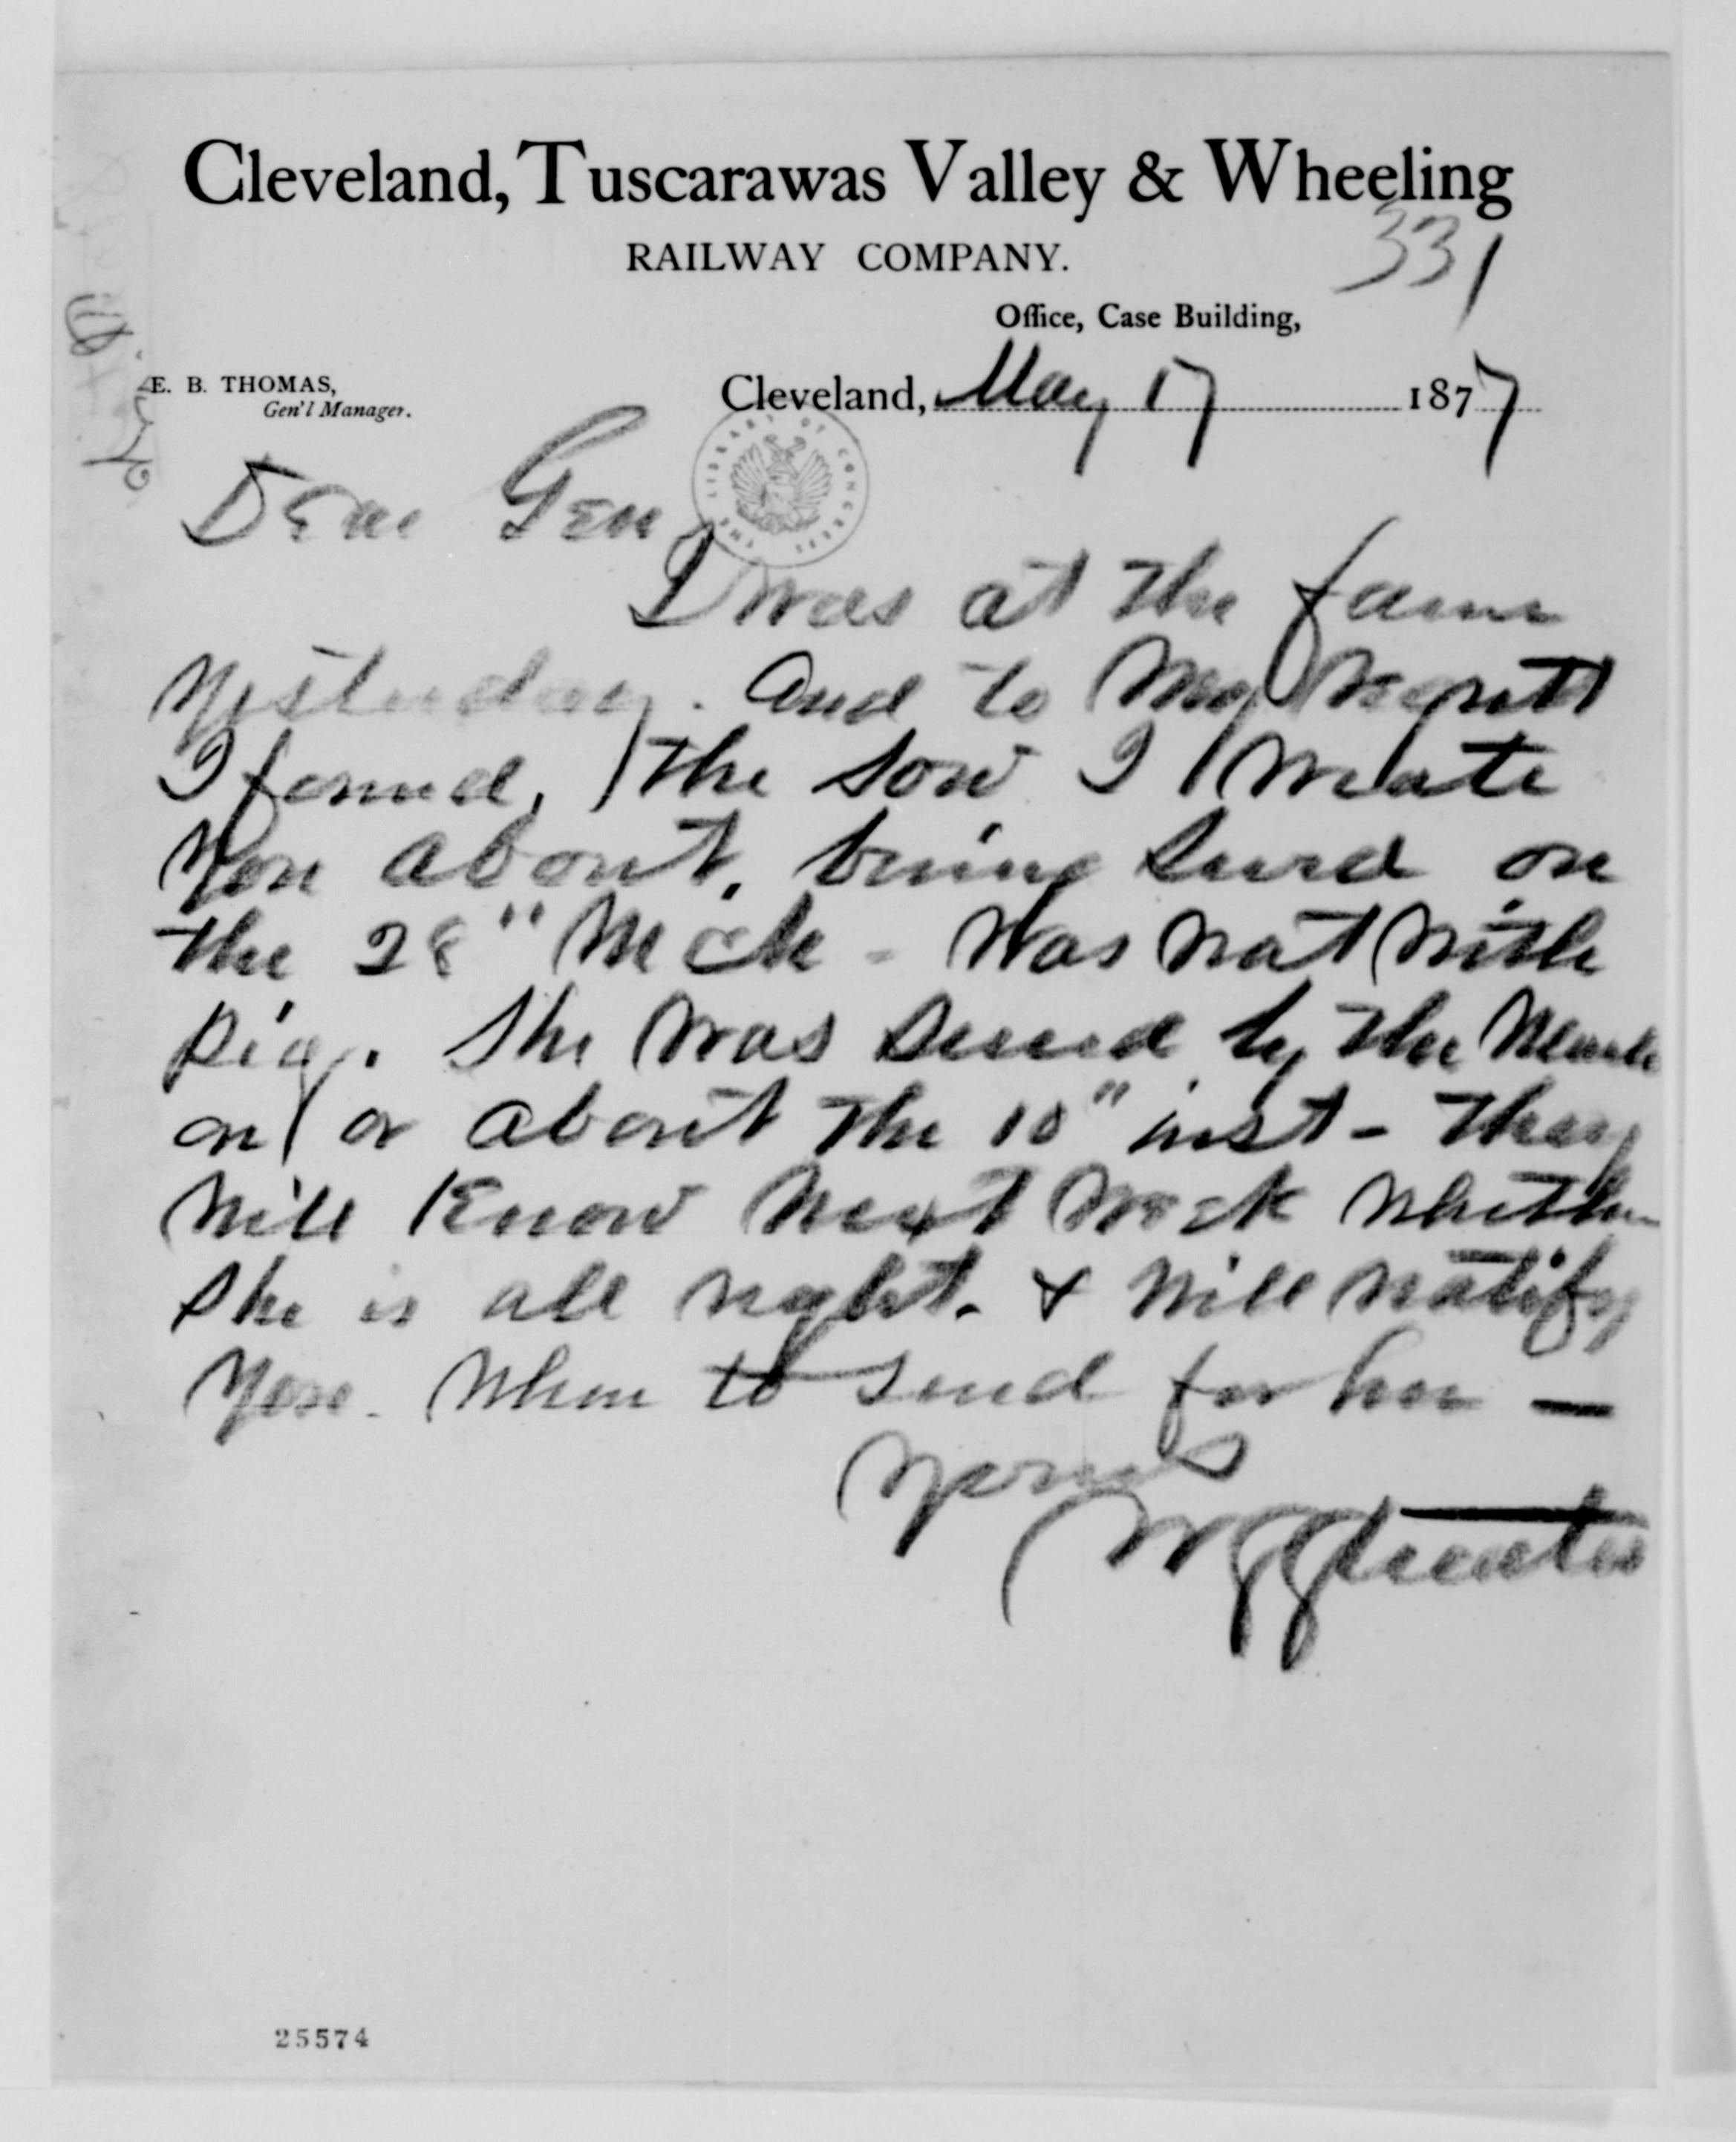 Cleveland, Tuscarawas Valley & Wheeling
RAILWAY COMPANY.
331
Office, Case Building,
E. B. THOMAS,
Gen'l Manager.
Cleveland, May 17 1877
Dear Gen
I was at the farm
yesterday. and to my regrett
I found, the sow I wrote
you about, being served on
the 28" Mch - was not with
pig. She was served by the
on or about the 10" inst - They
will know next week whether
she is all right. & will notify
you. when to send for her —
Yours
THE LIBRARY OF CONGRESS
25574